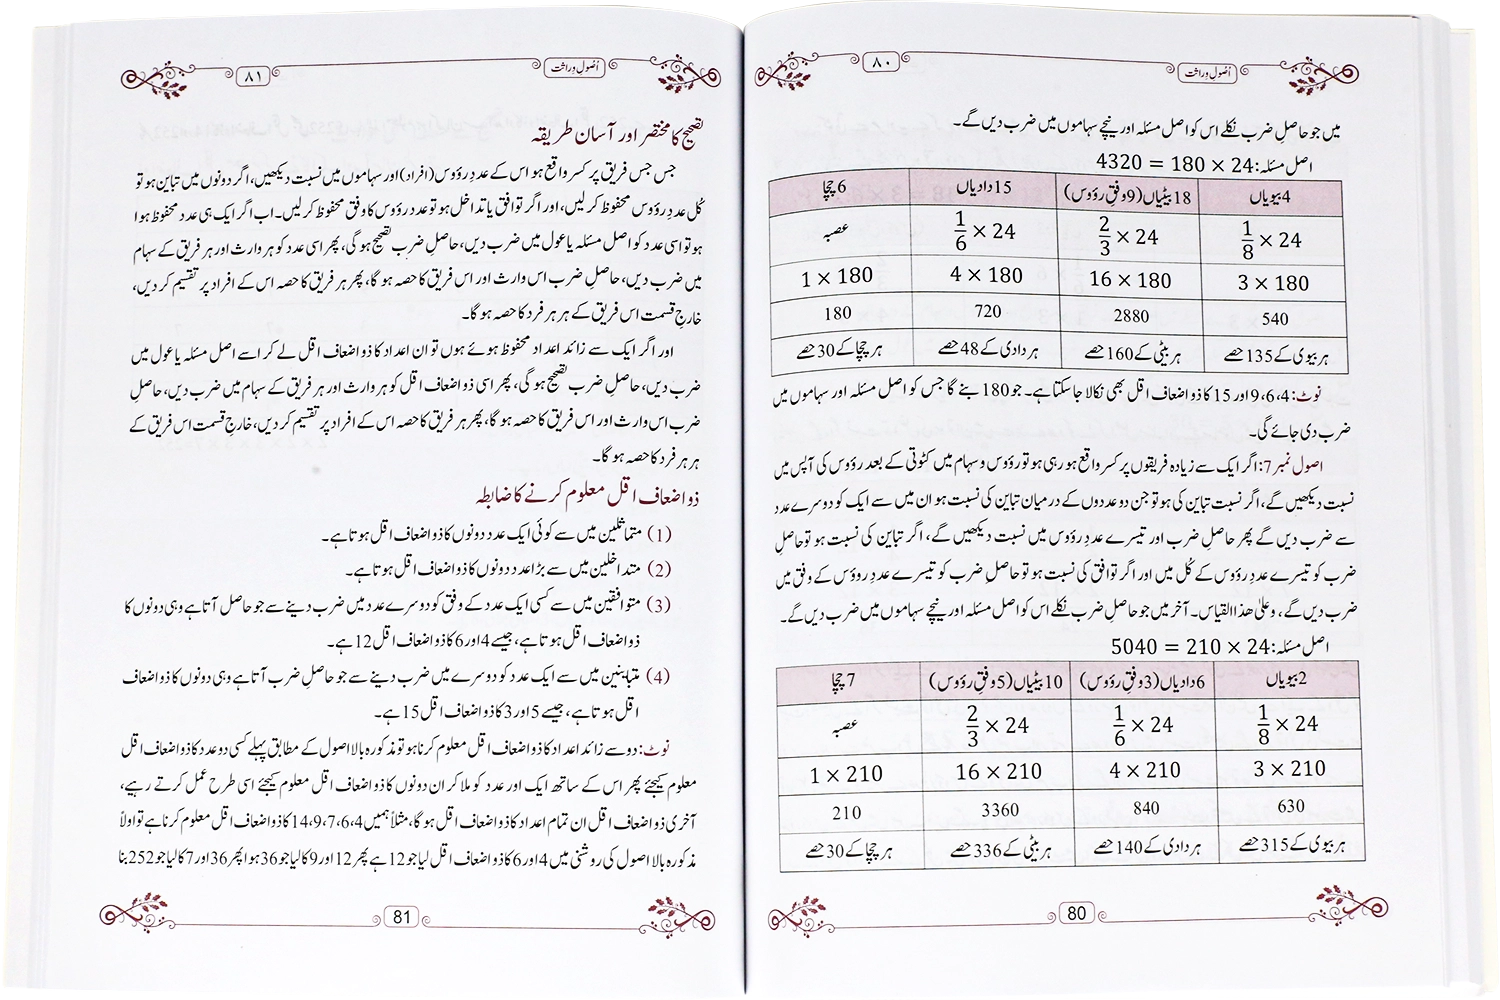 ۸۰
اُصُولِ وراثت
میں جو حاصلِ ضرب نکلے اس کو اصل مسئلہ اور نیچے سہاموں میں ضرب دیں گے۔
اصل مسئلہ: 24 × 180 = 4320
4 بیویاں	18 بیٹیاں (9 وفقِ رؤوس)	15 دادیاں	6 چچا
1/8 × 24	2/3 × 24	1/6 × 24	عصبہ
3 × 180	16 × 180	4 × 180	1 × 180
540	2880	720	180
ہر بیوی کے 135 حصے	ہر بیٹی کے 160 حصے	ہر دادی کے 48 حصے	ہر چچا کے 30 حصے
نوٹ: 4، 6، 9 اور 15 کا ذواضعاف اقل بھی نکالا جا سکتا ہے۔ جو 180 بنے گا جس کو اصل مسئلہ اور سہاموں میں
ضرب دی جائے گی۔
اصول نمبر 7: اگر ایک سے زیادہ فریقوں پر کسر واقع ہو رہی ہو تو رؤوس و سہام میں کٹوتی کے بعد رؤوس کی آپس میں
نسبت دیکھیں گے، اگر نسبت تباین کی ہو تو جن دو عددوں کے درمیان تباین کی نسبت ہو ان میں سے ایک کو دوسرے عدد
سے ضرب دیں گے پھر حاصلِ ضرب اور تیسرے عددِ رؤوس میں نسبت دیکھیں گے، اگر تباین کی نسبت ہو تو حاصلِ
ضرب کو تیسرے عددِ رؤوس کے کُل میں اور اگر توافق کی نسبت ہو تو حاصلِ ضرب کو تیسرے عددِ رؤوس کے وفق میں
ضرب دیں گے، وعلیٰ ھذا القیاس۔ آخر میں جو حاصلِ ضرب نکلے گا اس کو اصل مسئلہ اور نیچے سہاموں میں ضرب دیں گے۔
اصل مسئلہ: 24 × 210 = 5040
2 بیویاں	6 دادیاں (3 وفقِ رؤوس)	10 بیٹیاں (5 وفقِ رؤوس)	7 چچا
1/8 × 24	1/6 × 24	2/3 × 24	عصبہ
3 × 210	4 × 210	16 × 210	1 × 210
630	840	3360	210
ہر بیوی کے 315 حصے	ہر دادی کے 140 حصے	ہر بیٹی کے 336 حصے	ہر چچا کے 30 حصے
80
اُصُولِ وراثت
۸۱
تصحیح کا مختصر اور آسان طریقہ
جس جس فریق پر کسر واقع ہو اس کے عددِ رؤوس (افراد) اور سہاموں میں نسبت دیکھیں، اگر دونوں میں تباین ہو تو
کُل عددِ رؤوس محفوظ کر لیں، اور اگر توافق یا تداخل ہو تو عددِ رؤوس کا وفق محفوظ کر لیں۔ اب اگر ایک ہی عدد محفوظ ہوا
ہو تو اسی عدد کو اصل مسئلہ یا عول میں ضرب دیں، حاصلِ ضرب تصحیح ہو گی، پھر اسی عدد کو ہر وارث اور ہر فریق کے سہام
میں ضرب دیں، حاصلِ ضرب اس وارث اور اس فریق کا حصہ ہو گا، پھر ہر فریق کا حصہ اس کے افراد پر تقسیم کر دیں،
خارجِ قسمت اس فریق کے ہر ہر فرد کا حصہ ہو گا۔
اور اگر ایک سے زائد اعداد محفوظ ہوئے ہوں تو ان اعداد کا ذواضعاف اقل لے کر اسے اصل مسئلہ یا عول میں
ضرب دیں، حاصلِ ضرب تصحیح ہو گی، پھر اسی ذواضعاف اقل کو ہر وارث اور ہر فریق کے سہام میں ضرب دیں، حاصلِ
ضرب اس وارث اور اس فریق کا حصہ ہو گا، پھر ہر فریق کا حصہ اس کے افراد پر تقسیم کر دیں، خارجِ قسمت اس فریق کے
ہر ہر فرد کا حصہ ہو گا۔
ذواضعاف اقل معلوم کرنے کا ضابطہ
(1) متماثلین میں سے کوئی ایک عدد دونوں کا ذواضعاف اقل ہوتا ہے۔
(2) متداخلین میں سے بڑا عدد دونوں کا ذواضعاف اقل ہوتا ہے۔
(3) متوافقین میں سے کسی ایک عدد کے وفق کو دوسرے عدد میں ضرب دینے سے جو حاصل آتا ہے وہی دونوں کا
ذواضعاف اقل ہوتا ہے، جیسے 4 اور 6 کا ذواضعاف اقل 12 ہے۔
(4) متباینین میں سے ایک عدد کو دوسرے میں ضرب دینے سے جو حاصلِ ضرب آتا ہے وہی دونوں کا ذواضعاف
اقل ہوتا ہے، جیسے 5 اور 3 کا ذواضعاف اقل 15 ہے۔
نوٹ: دو سے زائد اعداد کا ذواضعاف اقل معلوم کرنا ہو تو مذکورہ بالا اصول کے مطابق پہلے کسی دو عدد کا ذواضعاف اقل
معلوم کیجئے پھر اس کے ساتھ ایک اور عدد کو ملا کر ان دونوں کا ذواضعاف اقل معلوم کیجئے اسی طرح عمل کرتے رہیے،
آخری ذواضعاف اقل ان تمام اعداد کا ذواضعاف اقل ہو گا، مثلاً ہمیں 4، 6، 7، 9، 14 کا ذواضعاف اقل معلوم کرنا ہے تو اولاً
مذکورہ بالا اصول کی روشنی میں 4 اور 6 کا ذواضعاف اقل لیا جو 12 ہے پھر 12 اور 9 کا لیا جو 36 ہوا پھر 36 اور 7 کا لیا جو 252 بنا
81